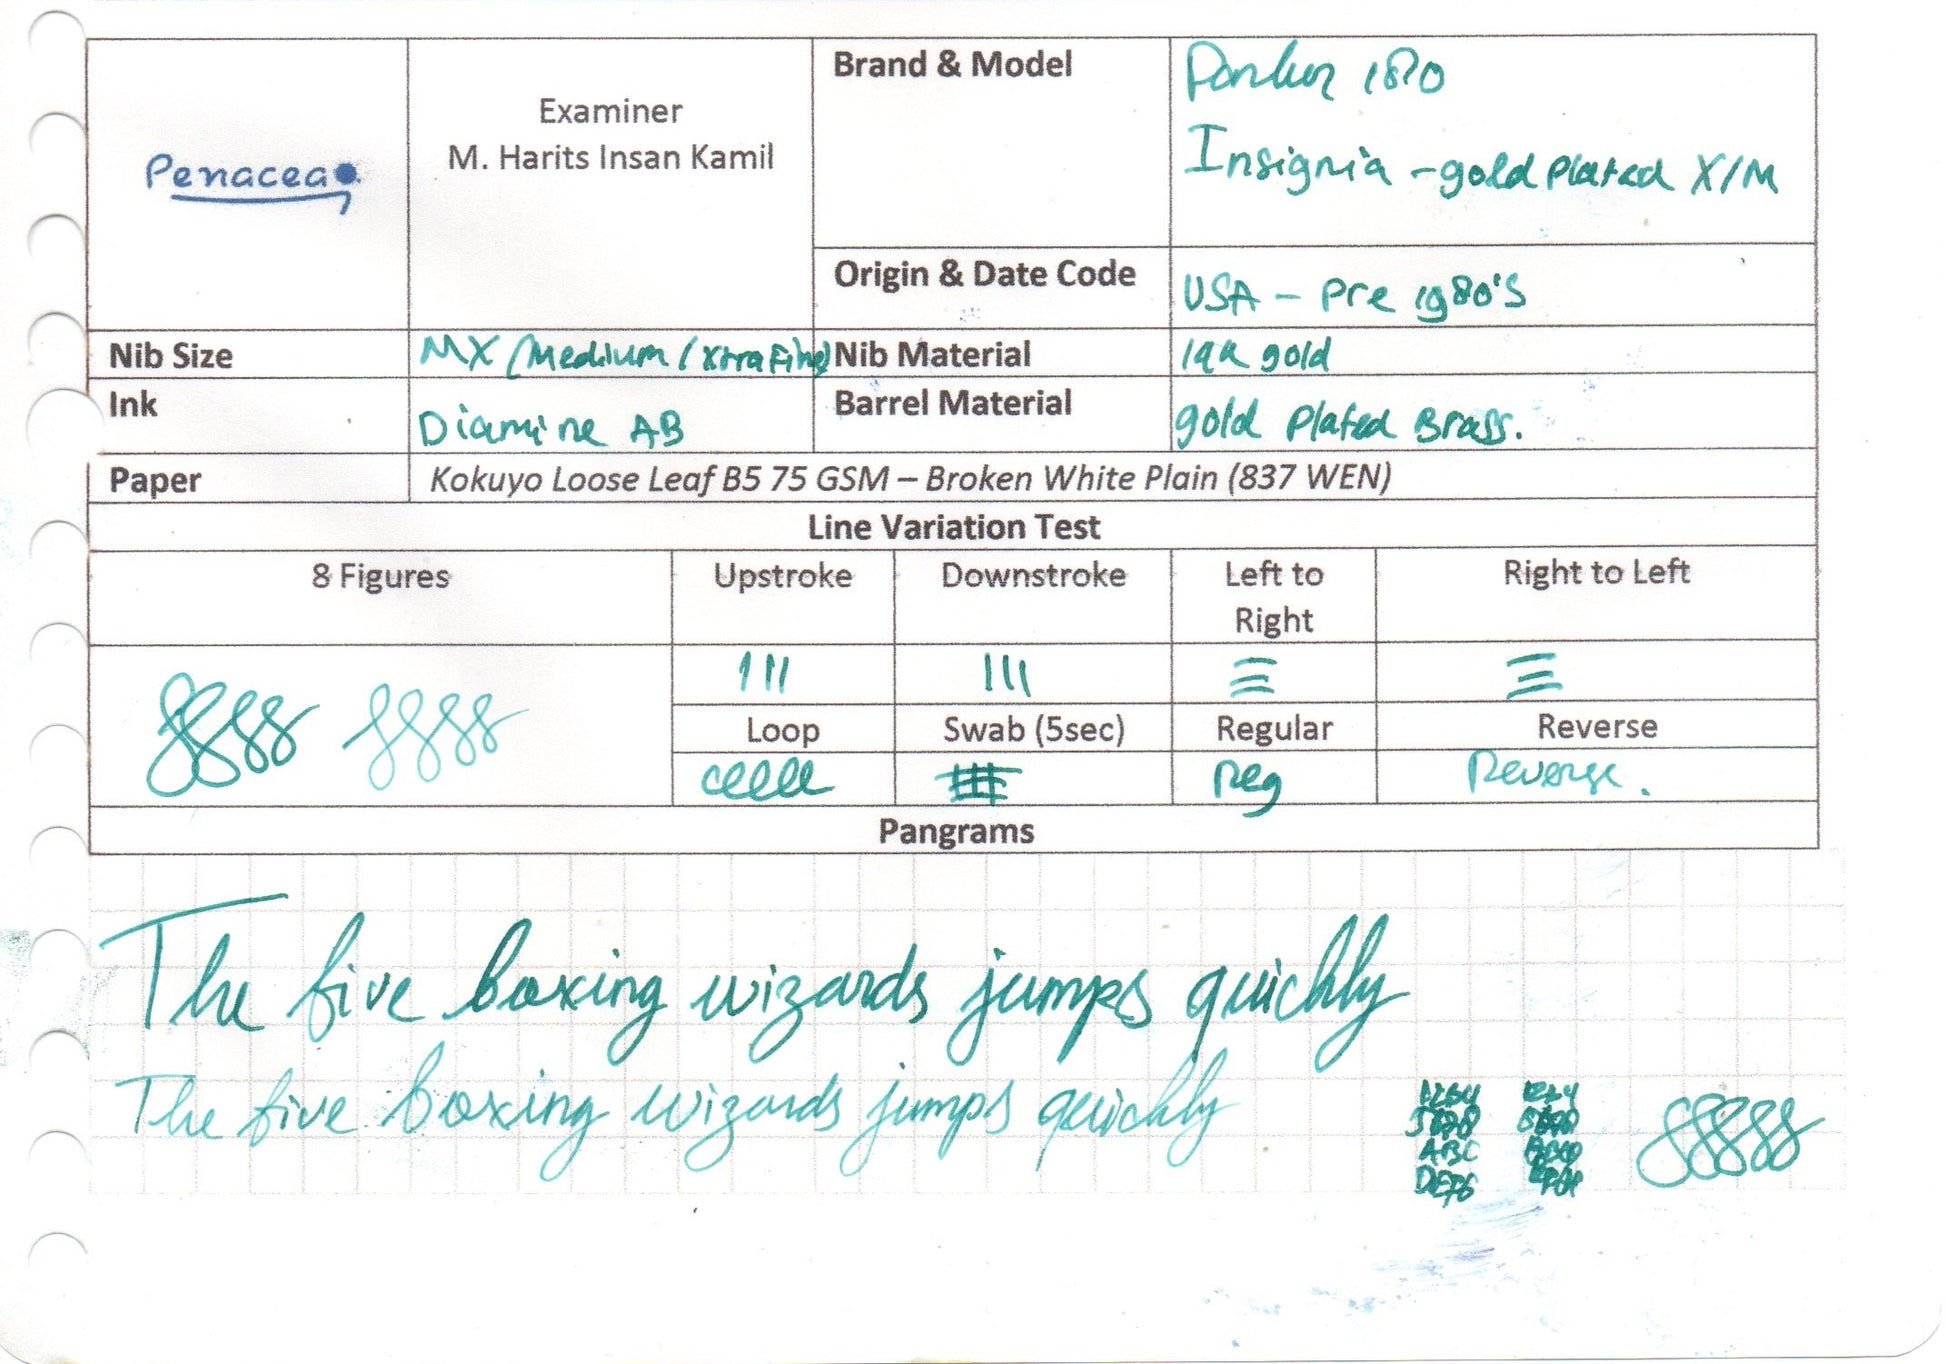 Penacea
Examiner
M. Harits Insan Kamil
Brand & Model
Parker 180
Insignia - gold Plated X/M
Origin & Date Code
USA - Pre 1980's
Nib Size
MX (Medium/XtraFine)
Nib Material
14k gold
Ink
Diamine AB
Barrel Material
gold Plated Brass.
Paper
Kokuyo Loose Leaf B5 75 GSM – Broken White Plain (837 WEN)
Line Variation Test
8 Figures
Upstroke
Downstroke
Left to
Right
Right to Left
Loop
Swab (5sec)
Regular
Reverse
Reg
Reverse.
Pangrams
The five boxing wizards jumps quickly
The five boxing wizards jumps quickly
ABC